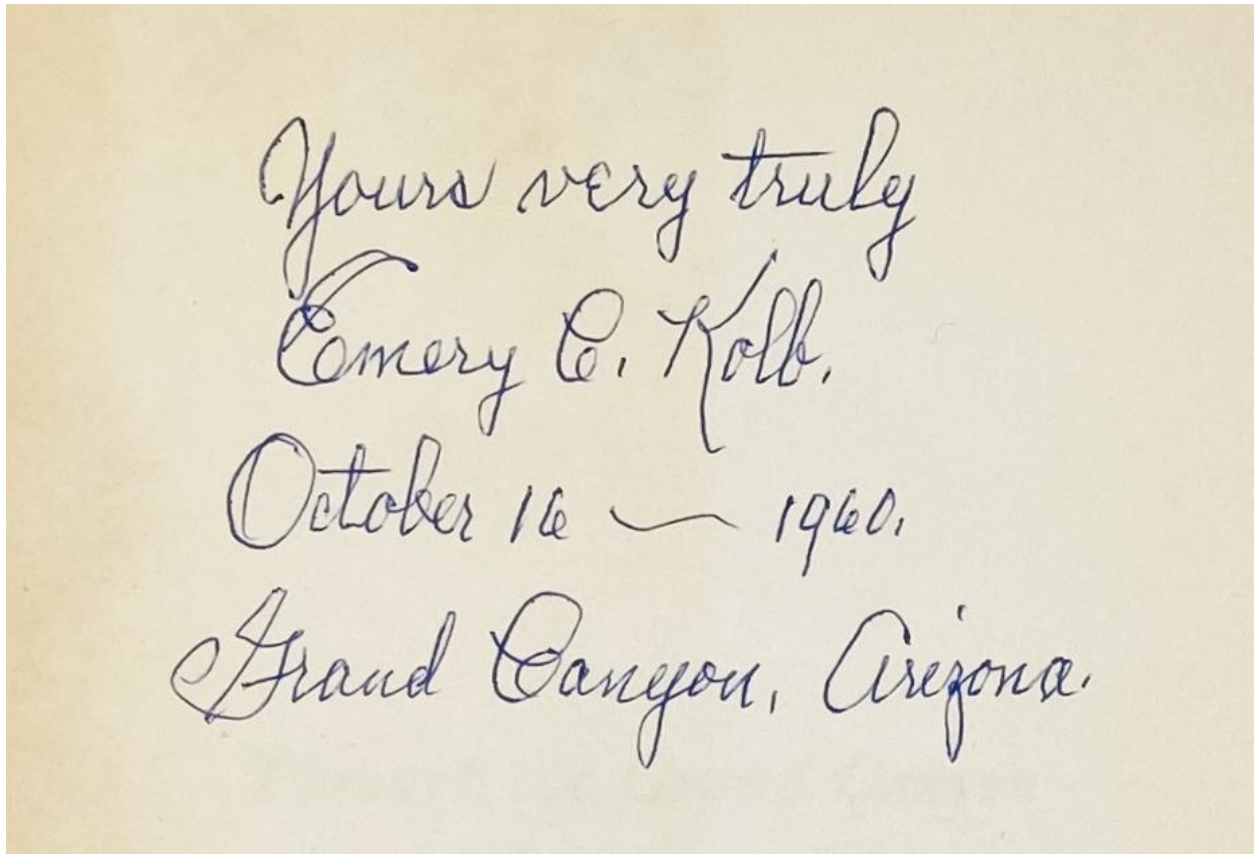 Yours very truly
Emery C. Kolb.
October 16 — 1960.
Grand Canyon, Arizona.